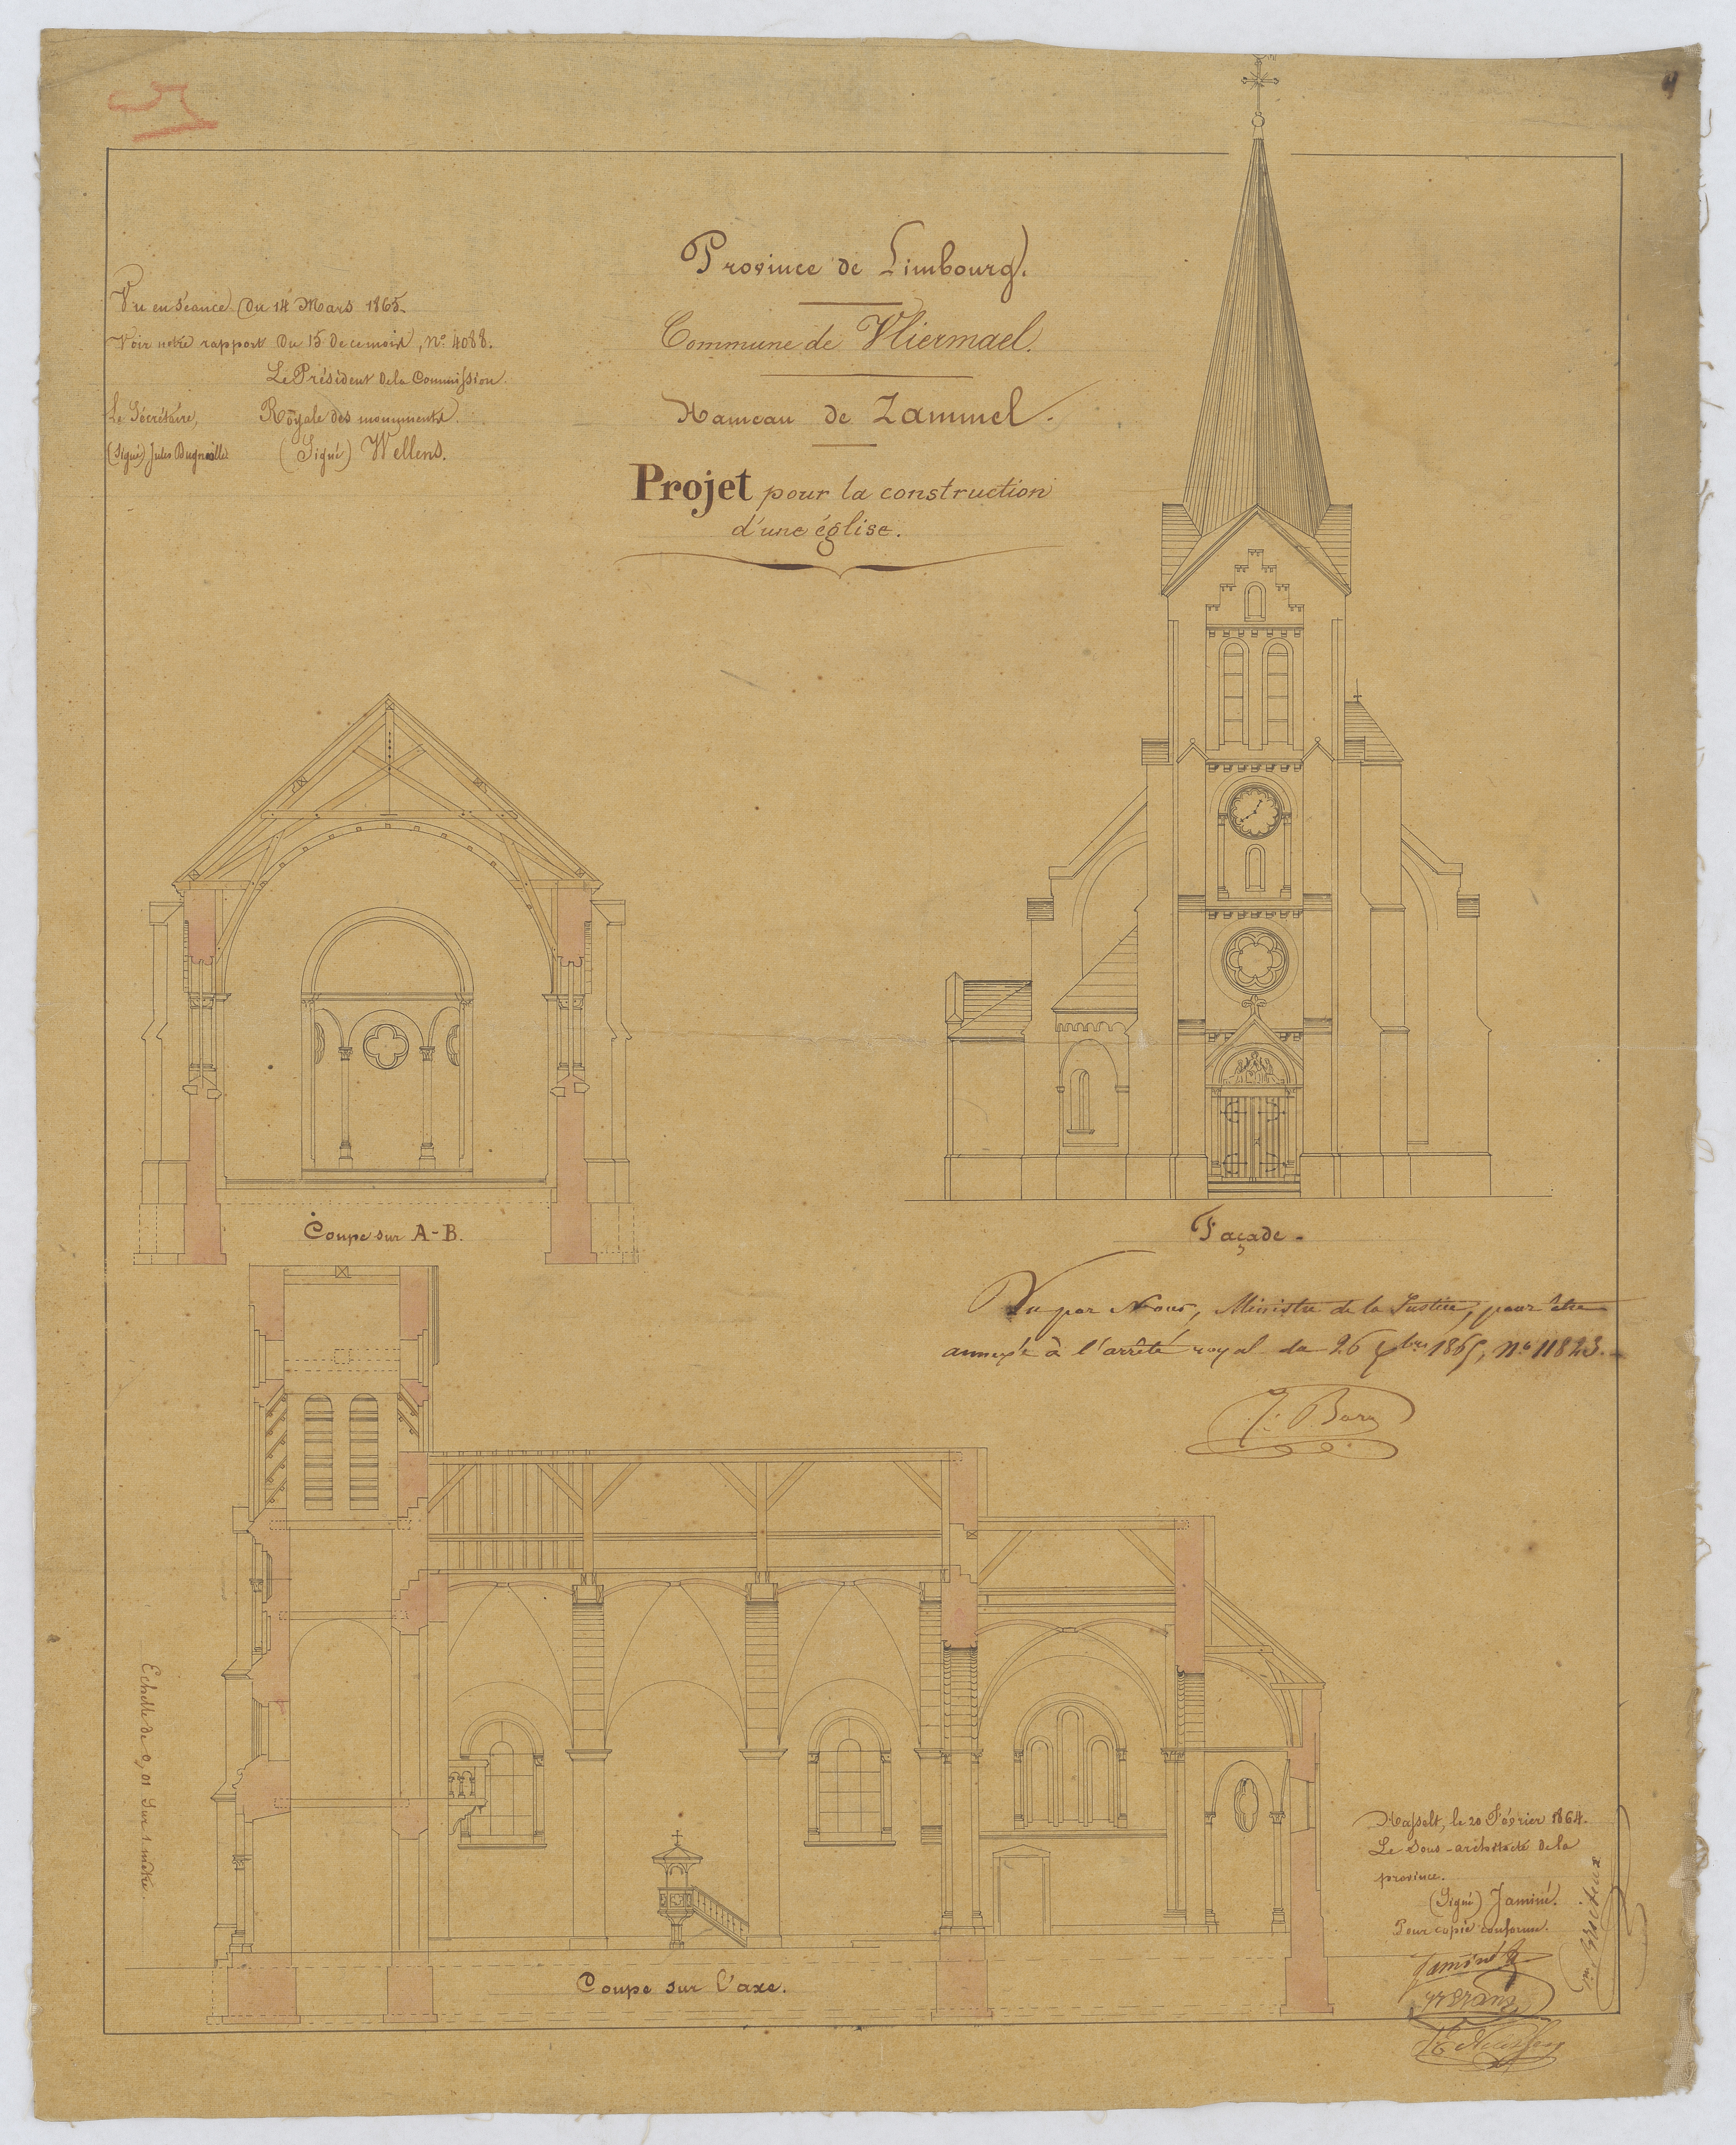 Province de Limbourg.
Commune de Vliermael.
Hameau de Zammel.
Projet pour la construction
d'une église.
Vu en séance du 14 Mars 1865.
Voir notre rapport du 15 de ce mois, N° 4088.
Le Président de la Commission
Le Sécrétaire, Royale des monuments.
(Signé) Jules Dugniolle (Signé) Wellens.
Coupe sur A-B.
Façade.
Vu par Nous, Ministre de la Justice, pour être
annexé à l'arrêté royal du 26 1865, N° 11823.
J. Bara
Echelle de 0,01 Sur 1 mètre.
Coupe sur l'axe.
Hasselt, le 20 Février 1864.
Le Sous-architecte de la
province.
(Signé) Jaminé.
Pour copie conforme.
Jaminé